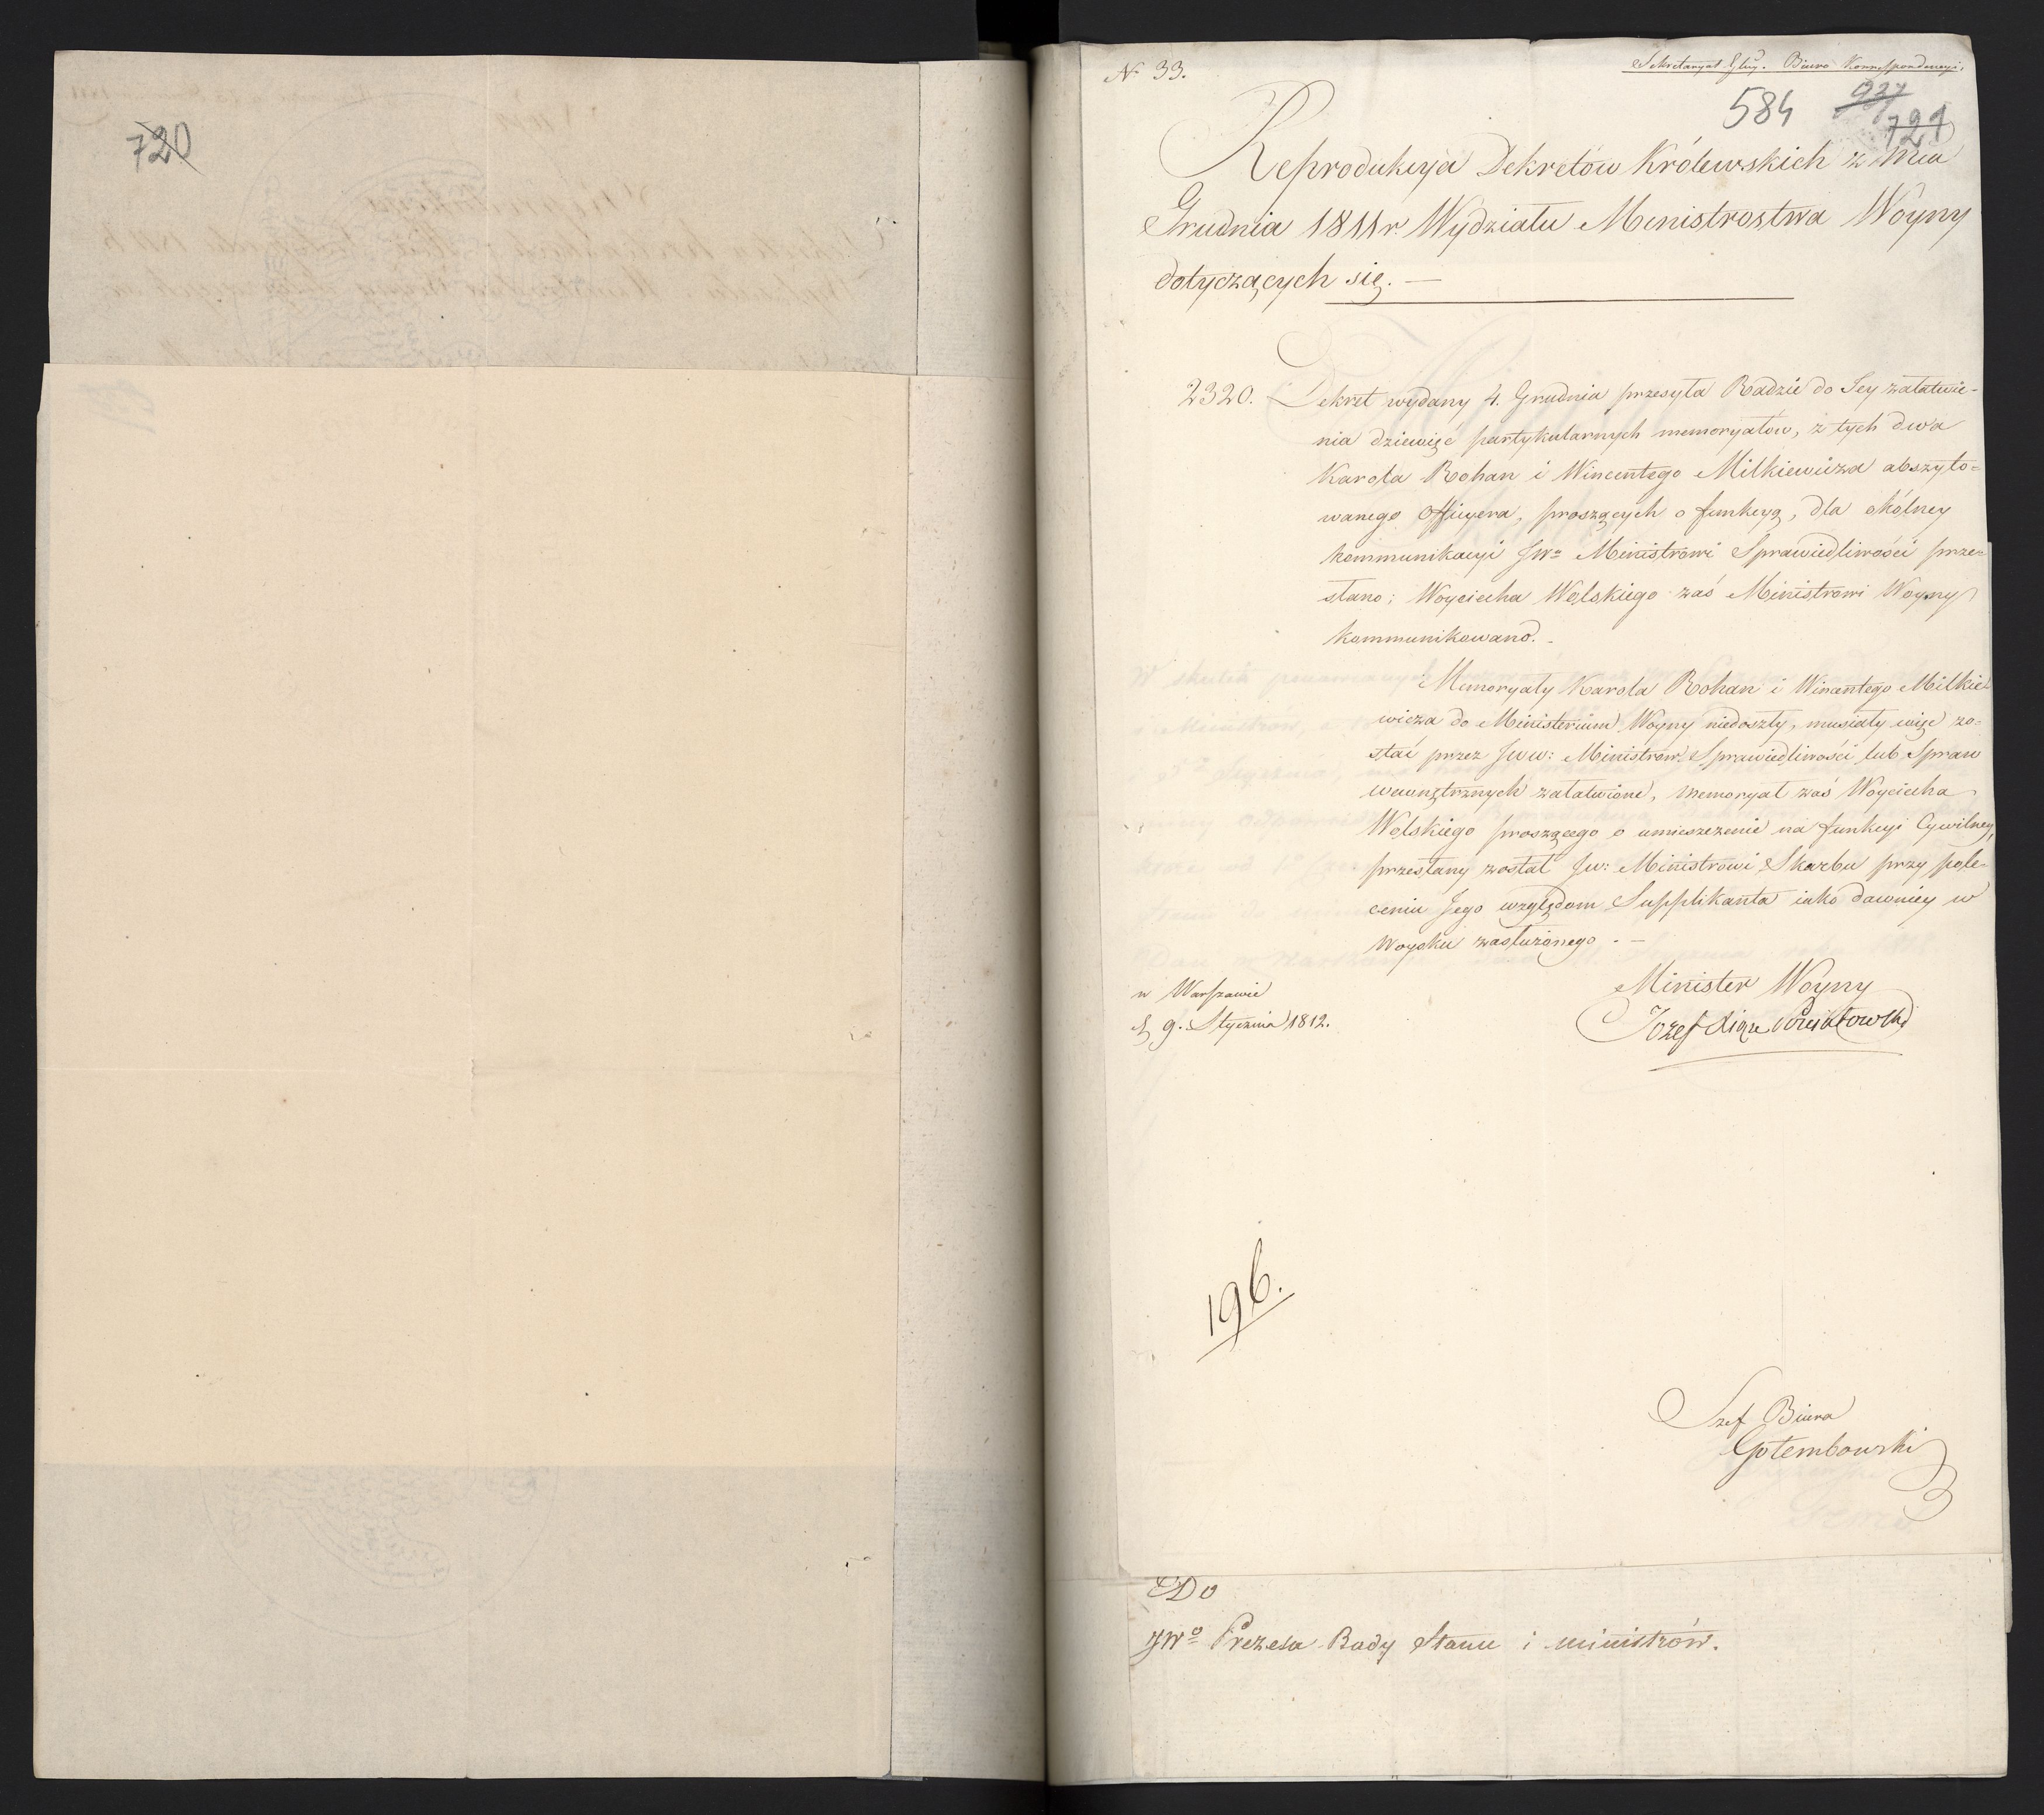 720
No 33.
Sekretaryat Głny. Biuro Korrespondencyi.
584
937
721
Reprodukcya Dekretów Królewskich z Mca
Grudnia 1811 r. Wydziału Ministrostwa Woyny
dotyczących się. —
2320. Dekret wydany 4. Grudnia przesyła Radzie do Jey załatwie-
nia dziewięć partykularnych memoryałów, z tych dwa
Karola Rohan i Wincentego Milkiewicza abszyto=
wanego Officyera, proszących o funkcyą, dla okólney
kommunikacyi JWo Ministrowi Sprawiedliwości prze=
słano; Woyciecha Wolskiego zaś Ministrowi Woyny
kommunikowano. -
Memoryały Karola Rohan i Wincentego Milkie=
wicza do Ministerium Woyny niedoszły, musiały więc zo=
stać przez Jww: Ministrów Sprawiedliwości lub Spraw
wewnętrznych załatwione, memoryał zaś Woyciecha
Wolskiego proszącego o umieszczenie na funkcyi Cywilney,
przesłany został Jw: Ministrowi Skarbu przy pole-
ceniu Jego względom Supplikanta iako dawniey w
Woysku zasłużonego. —
w Warszawie
d. 9. Stycznia 1812.
Minister Woyny
Jozef Xiąże Poniatowski
196.
Szef Biura
Gołembowski
Do
JWo Prezesa Rady Stanu i ministrów.